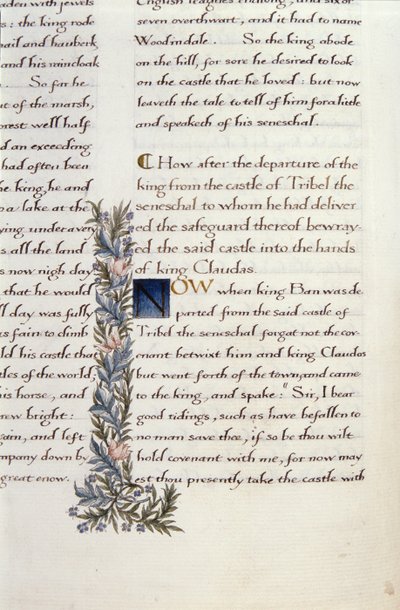 aden with jewels
s: the king rode
nail and hauberk,
and his raincloak
So far he
ut of the marsh,
orest well half
d an exceeding
had often been
he king, he and
o a lake at the
ying under a very
s all the land
s now nigh day
that he would
ll day was fully
s fain to climb
old his castle that
tles of the world,
his horse, and
rew bright:
gain, and left
mpany down by
great enow.
English leagues endlong, and six or
seven overthwart, and it had to name
Woodindale. So the king abode
on the hill, for sore he desired to look
on the castle that he loved: but now
leaveth the tale to tell of him for a little
and speaketh of his seneschal.
¶ How after the departure of the
king from the castle of Tribel the
seneschal to whom he had deliver
ed the safeguard thereof bewray-
ed the said castle into the hands
of king Claudas.
NOW when king Ban was de
parted from the said castle of
Tribel the seneschal forgat not the cov-
enant betwixt him and king Claudas
but went forth of the town, and came
to the king, and spake: "Sir, I bear
good tidings, such as have befallen to
no man save thee, if so be thou wilt
hold covenant with me, for now may
est thou presently take the castle with